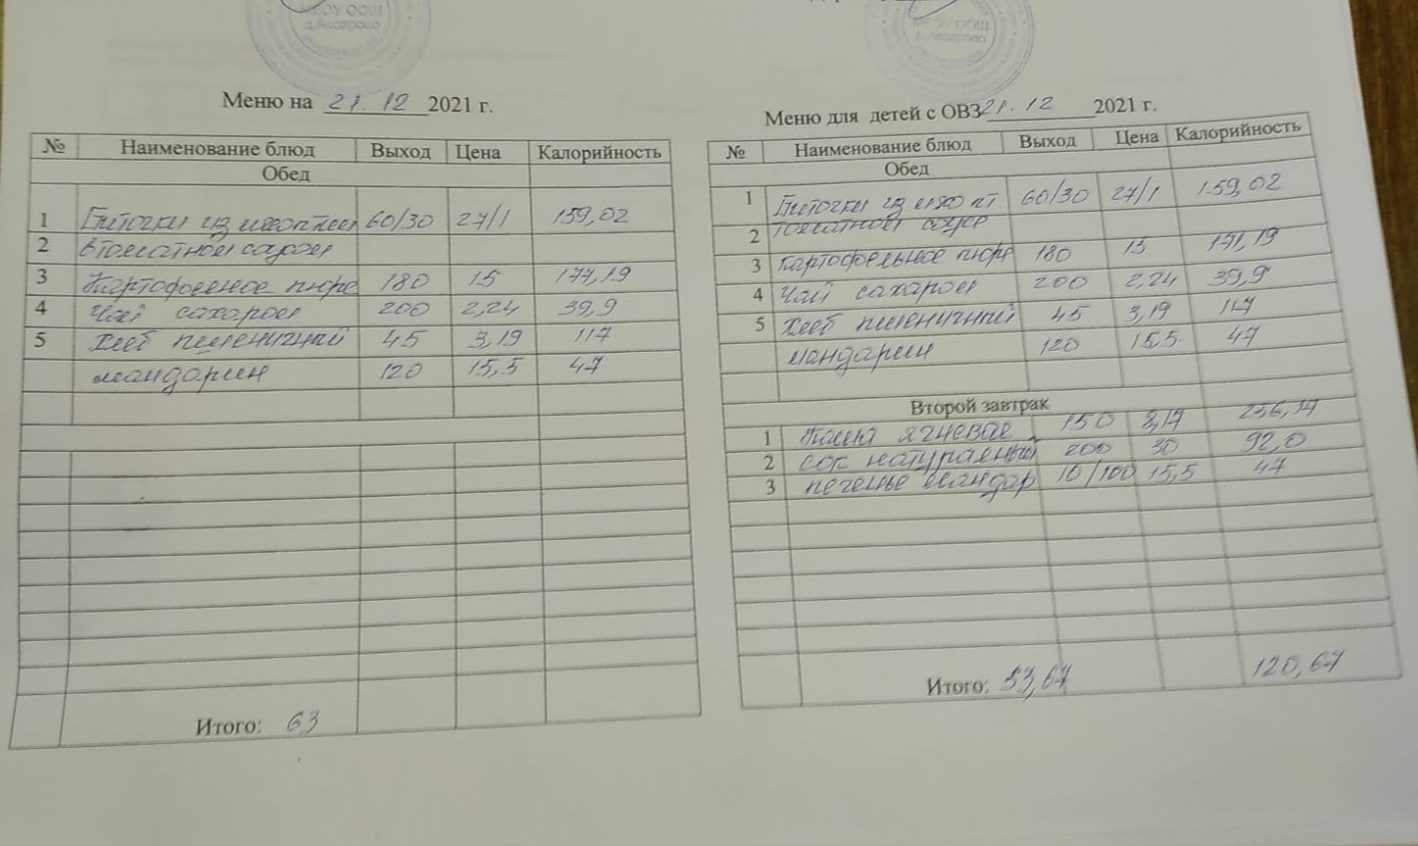 МБОУ ООШ
д.Аксарово
Меню на 21.12 2021 г.
№ Наименование блюд Выход Цена Калорийность
Обед
1 Биточки из мяса птицы 60/30 27/1 159,02
2 в томатном соусом
3 Картофельное пюре 180 15 177,19
4 Чай сахаром 200 2,24 39,9
5 Хлеб пшеничный 45 3,19 117
мандарин 120 15,5 47
Итого: 63
МБОУ ООШ
д.Аксарово
Меню для детей с ОВЗ 21.12 2021 г.
№ Наименование блюд Выход Цена Калорийность
Обед
1 Биточки из мяса пт 60/30 27/1 159,02
2 томатном соусе
3 картофельное пюре 180 15 171,19
4 Чай сахаром 200 2,24 39,9
5 Хлеб пшеничный 45 3,19 117
мандарин 120 15,5 47
Второй завтрак
1 Каша ячневая 150 8,17
2 сок натуральный 200 30 92,0
3 печенье мандар 10/100 15,5 47
Итого: 57,67 120,67